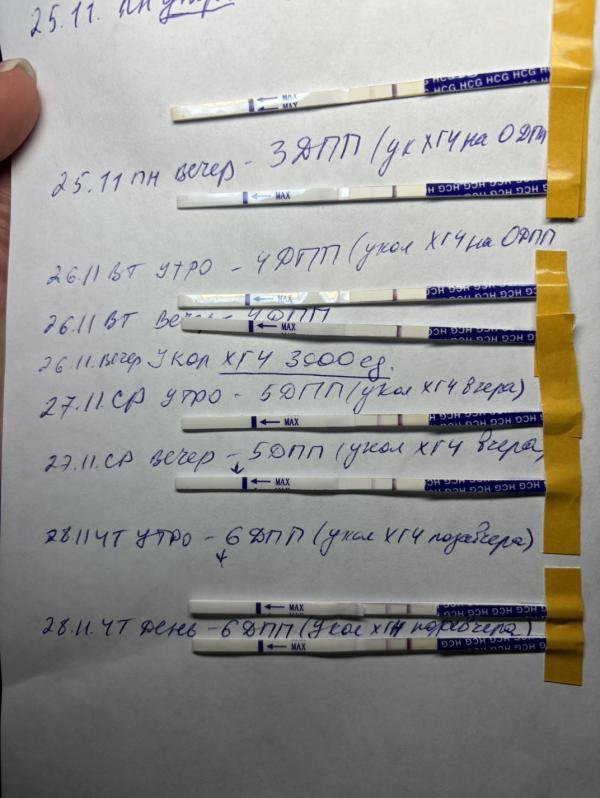 25.11. ПН утро
MAX
MAX
HCG HCG HCG HCG
HCG HCG HCG HCG
25.11 ПН вечер - 3ДПП (ук ХГЧ на 0ДПП
MAX
HCG HCG HCG
26.11 ВТ утро - 4ДПП (укол ХГЧ на 0ДПП
MAX
HCG HCG HCG
26.11 ВТ вечер - 4ДПП
MAX
HCG HCG HCG
26.11. вечер Укол ХГЧ 3000 ед.
27.11. СР утро - 5ДПП (укол ХГЧ вчера)
MAX
HCG HCG HCG
27.11. СР вечер - 5ДПП (укол ХГЧ вчера)
MAX
HCG HCG HCG
28.11 ЧТ утро - 6ДПП (укол ХГЧ позавчера)
MAX
HCG HCG HCG
28.11. ЧТ День - 6ДПП (Укол ХГЧ позавчера)
MAX
HCG HCG HCG